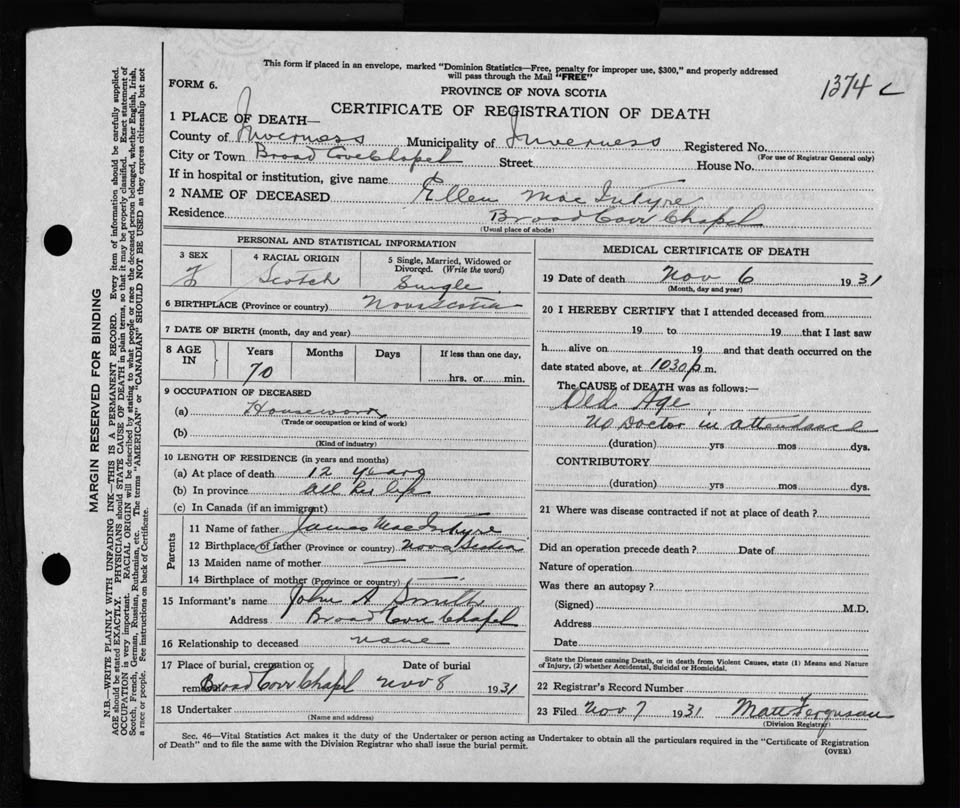 This form if placed in an envelope, marked "Dominion Statistics—Free, penalty for improper use, $300," and properly addressed
will pass through the Mail "FREE"
1374 c
FORM 6.
PROVINCE OF NOVA SCOTIA
CERTIFICATE OF REGISTRATION OF DEATH
1 PLACE OF DEATH—
County of Inverness Municipality of Inverness Registered No.
(For use of Registrar General only)
City or Town Broad Cove Chapel Street House No.
If in hospital or institution, give name
2 NAME OF DECEASED Ellen Mac Intyre
Residence Broad Cove Chapel
(Usual place of abode)
PERSONAL AND STATISTICAL INFORMATION
3 SEX 4 RACIAL ORIGIN 5 Single, Married, Widowed or
Divorced. (Write the word)
F Scotch Single
6 BIRTHPLACE (Province or country) Nova Scotia
7 DATE OF BIRTH (month, day and year)
8 AGE IN Years Months Days If less than one day,
70 hrs. or min.
9 OCCUPATION OF DECEASED
(a) Housework
(Trade or occupation or kind of work)
(b)
(Kind of industry)
10 LENGTH OF RESIDENCE (in years and months)
(a) At place of death 12 years
(b) In province all her life
(c) In Canada (if an immigrant)
Parents
11 Name of father James Mac Intyre
12 Birthplace of father (Province or country) Nova Scotia
13 Maiden name of mother —
14 Birthplace of mother (Province or country) —
15 Informant's name John A Smith
Address Broad Cove Chapel
16 Relationship to deceased none
17 Place of burial, cremation or Date of burial
removal Broad Cove Chapel Nov 8 1931
18 Undertaker
(Name and address)
MEDICAL CERTIFICATE OF DEATH
19 Date of death Nov 6 1931
(Month, day and year)
20 I HEREBY CERTIFY that I attended deceased from
19 to 19 that I last saw
h alive on 19 and that death occurred on the
date stated above, at 1030 p m.
The CAUSE of DEATH was as follows:—
Old Age
No Doctor in attendance
(duration) yrs mos dys.
CONTRIBUTORY
(duration) yrs mos dys.
21 Where was disease contracted if not at place of death?
Did an operation precede death? Date of
Nature of operation
Was there an autopsy?
(Signed) M.D.
Address
Date
State the Disease causing Death, or in death from Violent Causes, state (1) Means and Nature
of Injury, (2) whether Accidental, Suicidal or Homicidal.
22 Registrar's Record Number
23 Filed Nov 7 1931 Matt Ferguson
(Division Registrar)
Sec. 46—Vital Statistics Act makes it the duty of the Undertaker or person acting as Undertaker to obtain all the particulars required in the "Certificate of Registration
of Death" and to file the same with the Division Registrar who shall issue the burial permit.
(OVER)
MARGIN RESERVED FOR BINDING
N.B.—WRITE PLAINLY WITH UNFADING INK—THIS IS A PERMANENT RECORD. Every item of information should be carefully supplied.
AGE should be stated EXACTLY. PHYSICIANS should STATE CAUSE OF DEATH in plain terms, so that it may be properly classified. Exact statement of
OCCUPATION is very important. RACIAL ORIGIN will be described by stating to what people or race the deceased person belonged, whether English, Irish,
Scotch, French, German, Russian, Ruthenian, etc. The terms "AMERICAN" or "CANADIAN" SHOULD NOT BE USED as they express citizenship but not
a race or people. Fee instructions on back of Certificate.